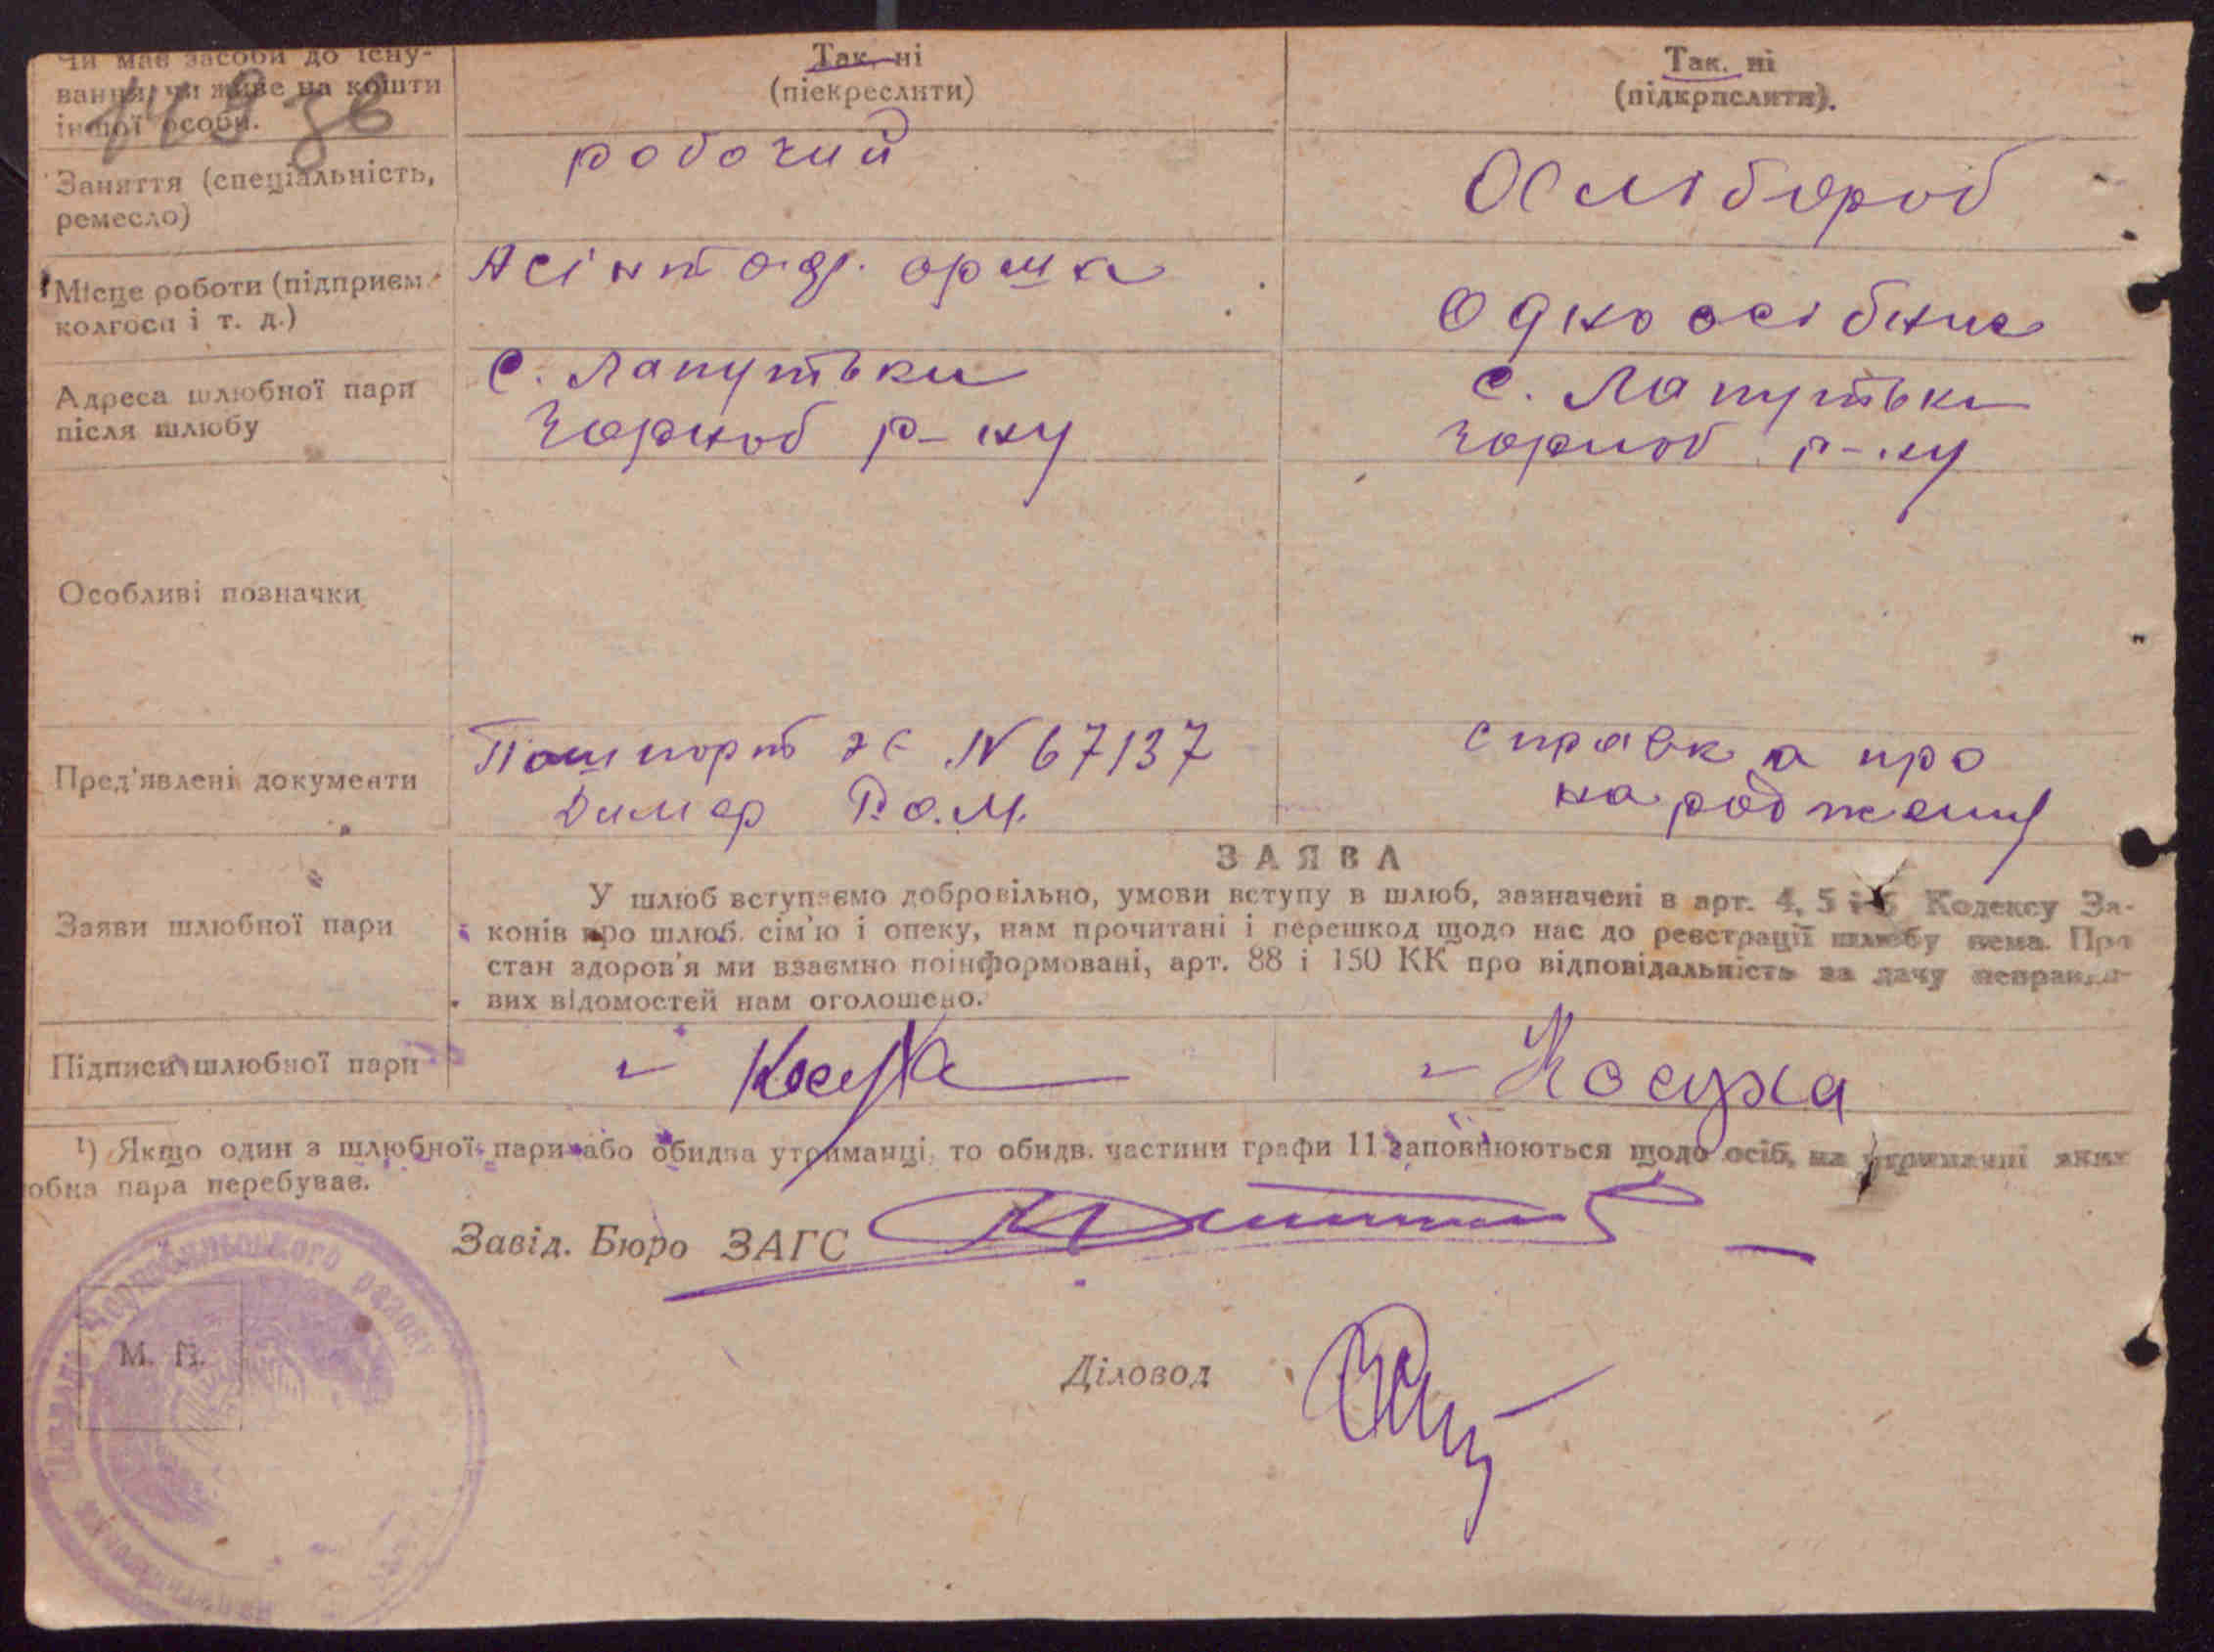 Чи має засоби до існу-
вання, чи живе на кошти
іншої особи.
Так, ні
(піекреслити)
Так. ні
(підкрпслити).
Заняття (спеціальність,
ремесло)
робочий
Хлібороб
Місце роботи (підприєм.
колгосп і т. д.)
Одноосібник
Адреса шлюбної пари
після шлюбу
С. Лапутьки
Чорноб р-ну
С. Лапутьки
Чорноб р-ну
Особливі позначки
Пред'явлені документи
Пашпорт N 67137
Димер Р.о.М.
справка про
народження
ЗАЯВА
Заяви шлюбної пари
У шлюб вступаємо добровільно, умови вступу в шлюб, зазначені в арт. 4, 5 і 6 Кодексу За-
конів про шлюб. сім'ю і опеку, нам прочитані і перешкод щодо нас до реєстрації шлюбу нема. Про
стан здоров'я ми взаємно поінформовані, арт. 88 і 150 КК про відповідальність за дачу неправди-
вих відомостей нам оголошено.
Підписи шлюбної пари
Косуха
Косуха
¹) Якщо один з шлюбної пари або обидва утриманці, то обидв. частини графи 11 заповнюються щодо осіб, на утриманні яких
обна пара перебуває.
Завід. Бюро ЗАГС
Чорнобильського району
М. П.
Діловод